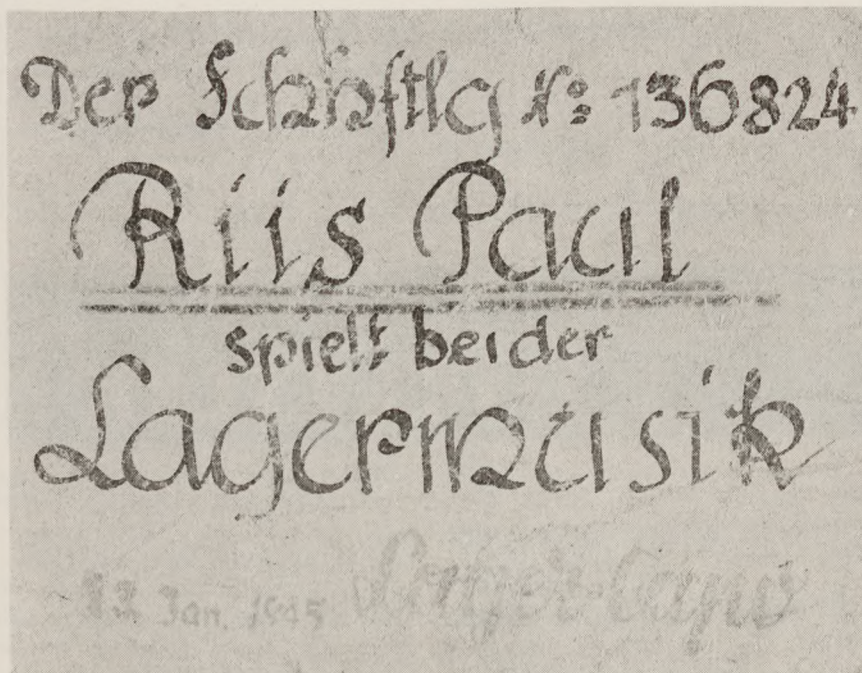 Der Schhftlg N: 136824
Riis Paul
spielt bei der
Lagermusik
12 Jan. 1945 Lager-Capo